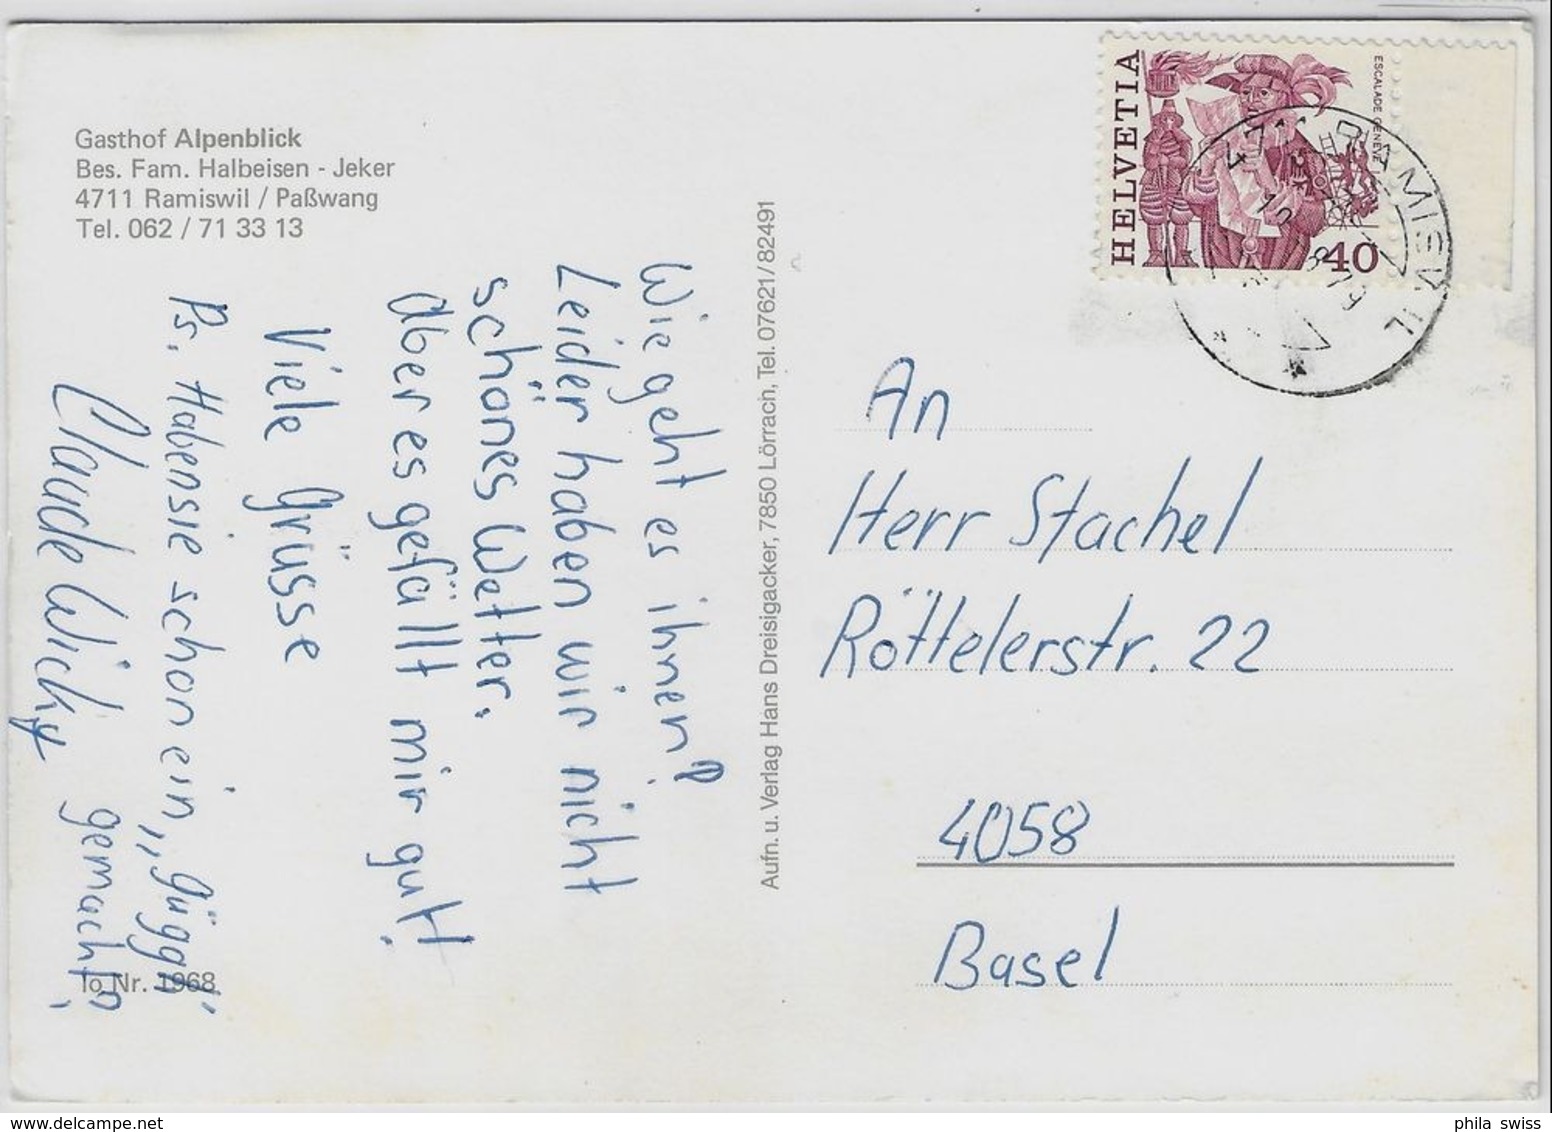 Gasthof Alpenblick
Bes. Fam. Halbeisen - Jeker
4711 Ramiswil / Paßwang
Tel. 062 / 71 33 13
Wie geht es ihnen?
Leider haben wir nicht
schönes Wetter.
aber es gefällt mir gut!
Viele Grüsse
Ps. Haben sie schon ein „güggi"
gemacht?
Claude Wicky
Io Nr. 1968
Aufn. u. Verlag Hans Dreisigacker, 7850 Lörrach, Tel. 07621/82491
HELVETIA
ESCALADE GENÈVE
40
RAMISWIL
An
Herr Stachel
Röttelerstr. 22
4058
Basel
phila swiss